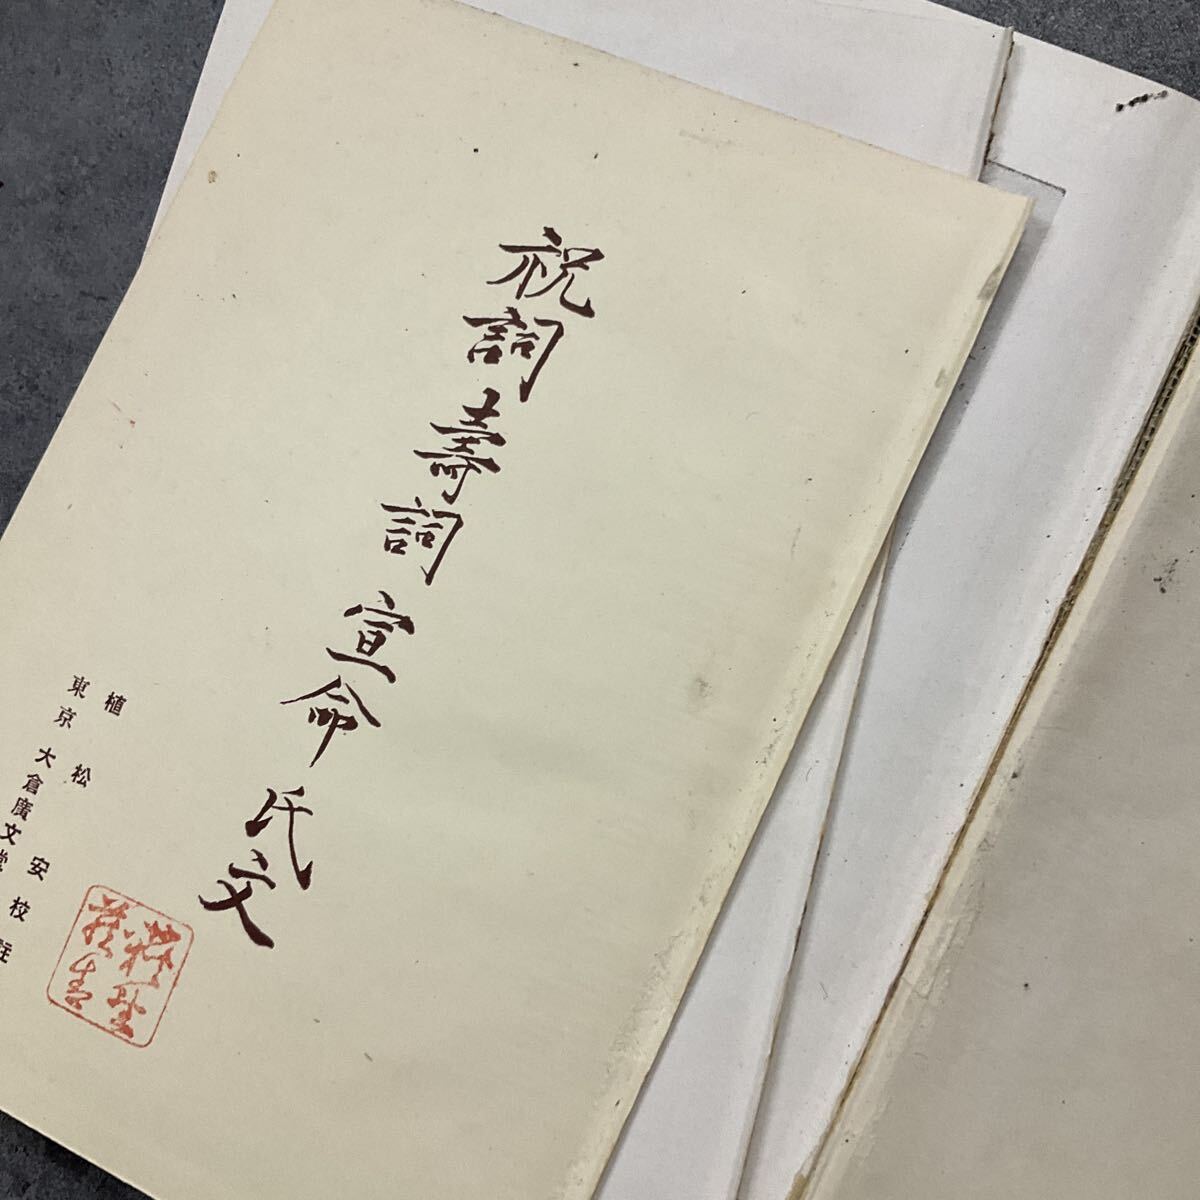 祝詞壽詞宣命氏文
植松安校註
東京 大倉廣文堂